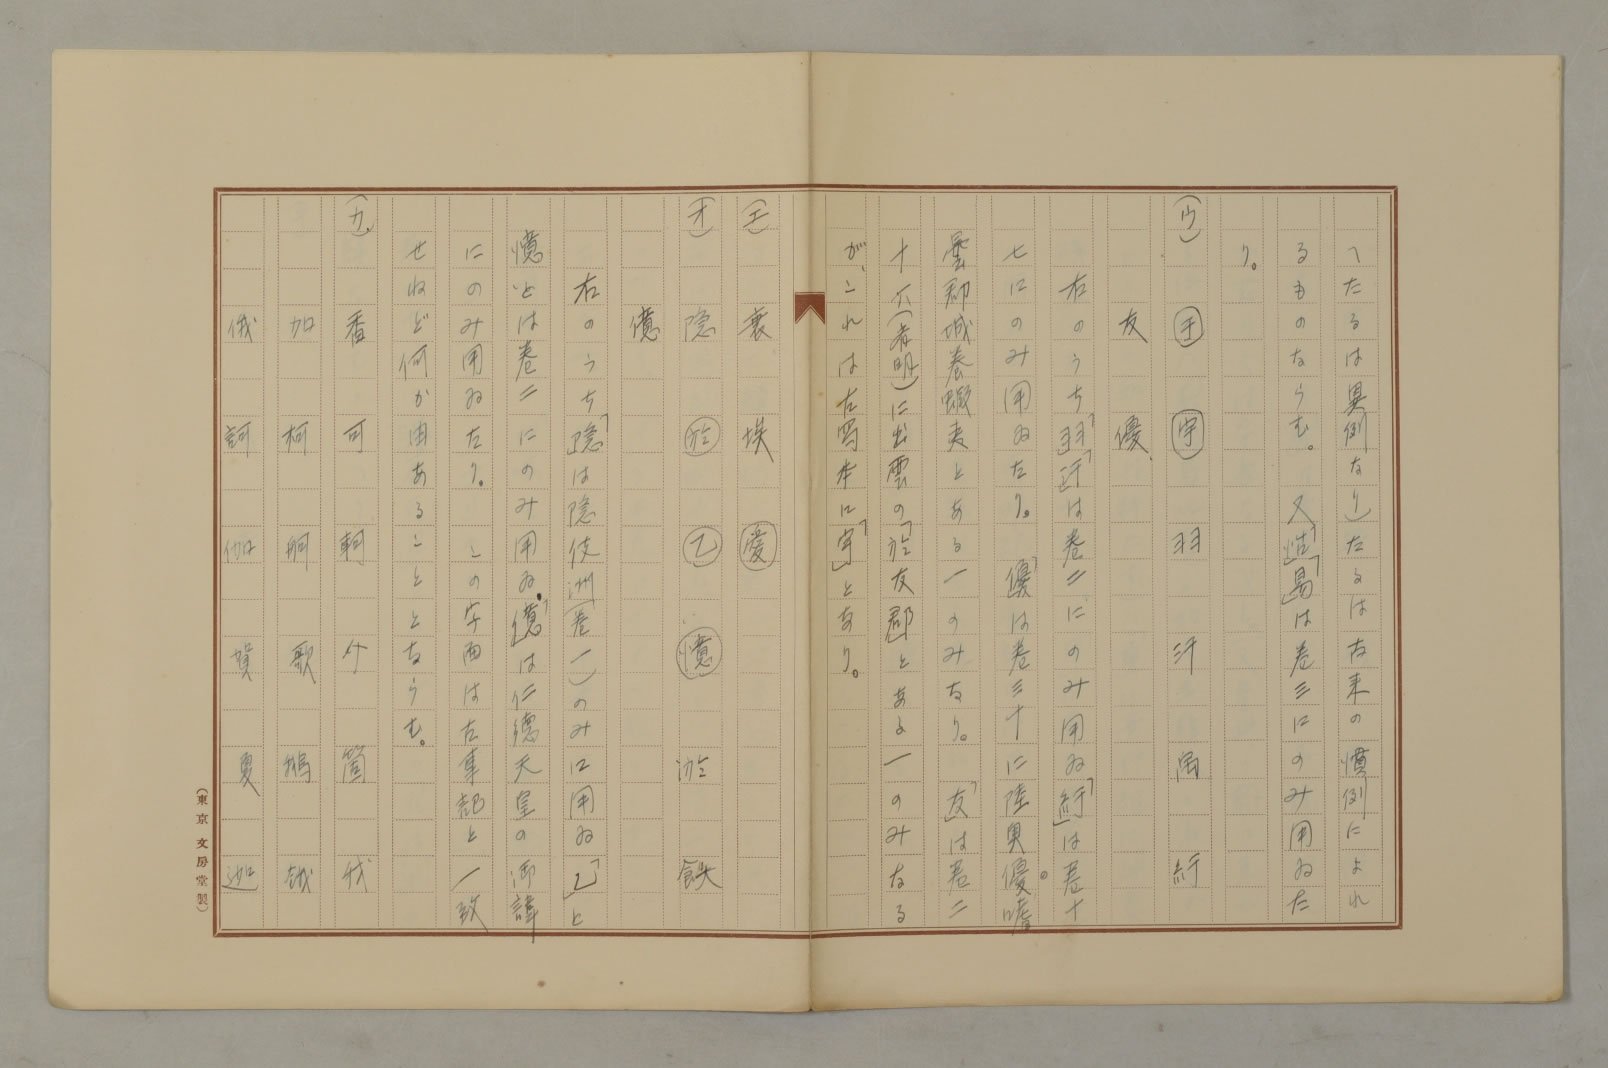 へたるは異例なり)たるは古来の慣例によれ
るものならむ。又「怙」「曷」は巻三にのみ用ゐた
り。
(ウ) 于 宇 羽 汙 禹 紆
友 優
右のうち「羽」「汙」は巻二にのみ用ゐ「紆」は巻十
七にのみ用ゐたり。「優」は巻三十に陸奥優嗜
曇郡城養蝦夷とある一のみなり。「友」は巻二
十六(斉明)に出雲の「於友郡」とある一のみなる
が、これは古写本に「宇」とあり。
(エ) 哀 埃 愛
(オ) 隠 於 乙 憶 淤 飫
億
右のうち「隠」は隠伎洲(巻一)のみに用ゐ「乙」と
憶とは巻二にのみ用ゐ「億」は仁徳天皇の御諱
にのみ用ゐたり。この字面は古事記と一致
せねど何か由あることとならむ。
(カ) 香 可 軻 介 箇 我
加 柯 舸 歌 鵝 峨
俄 訶 伽 賀 夏 迦
(東京 文房堂製)